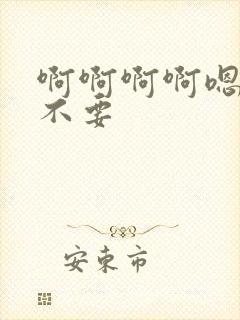 啊啊啊啊嗯
不要
安東市